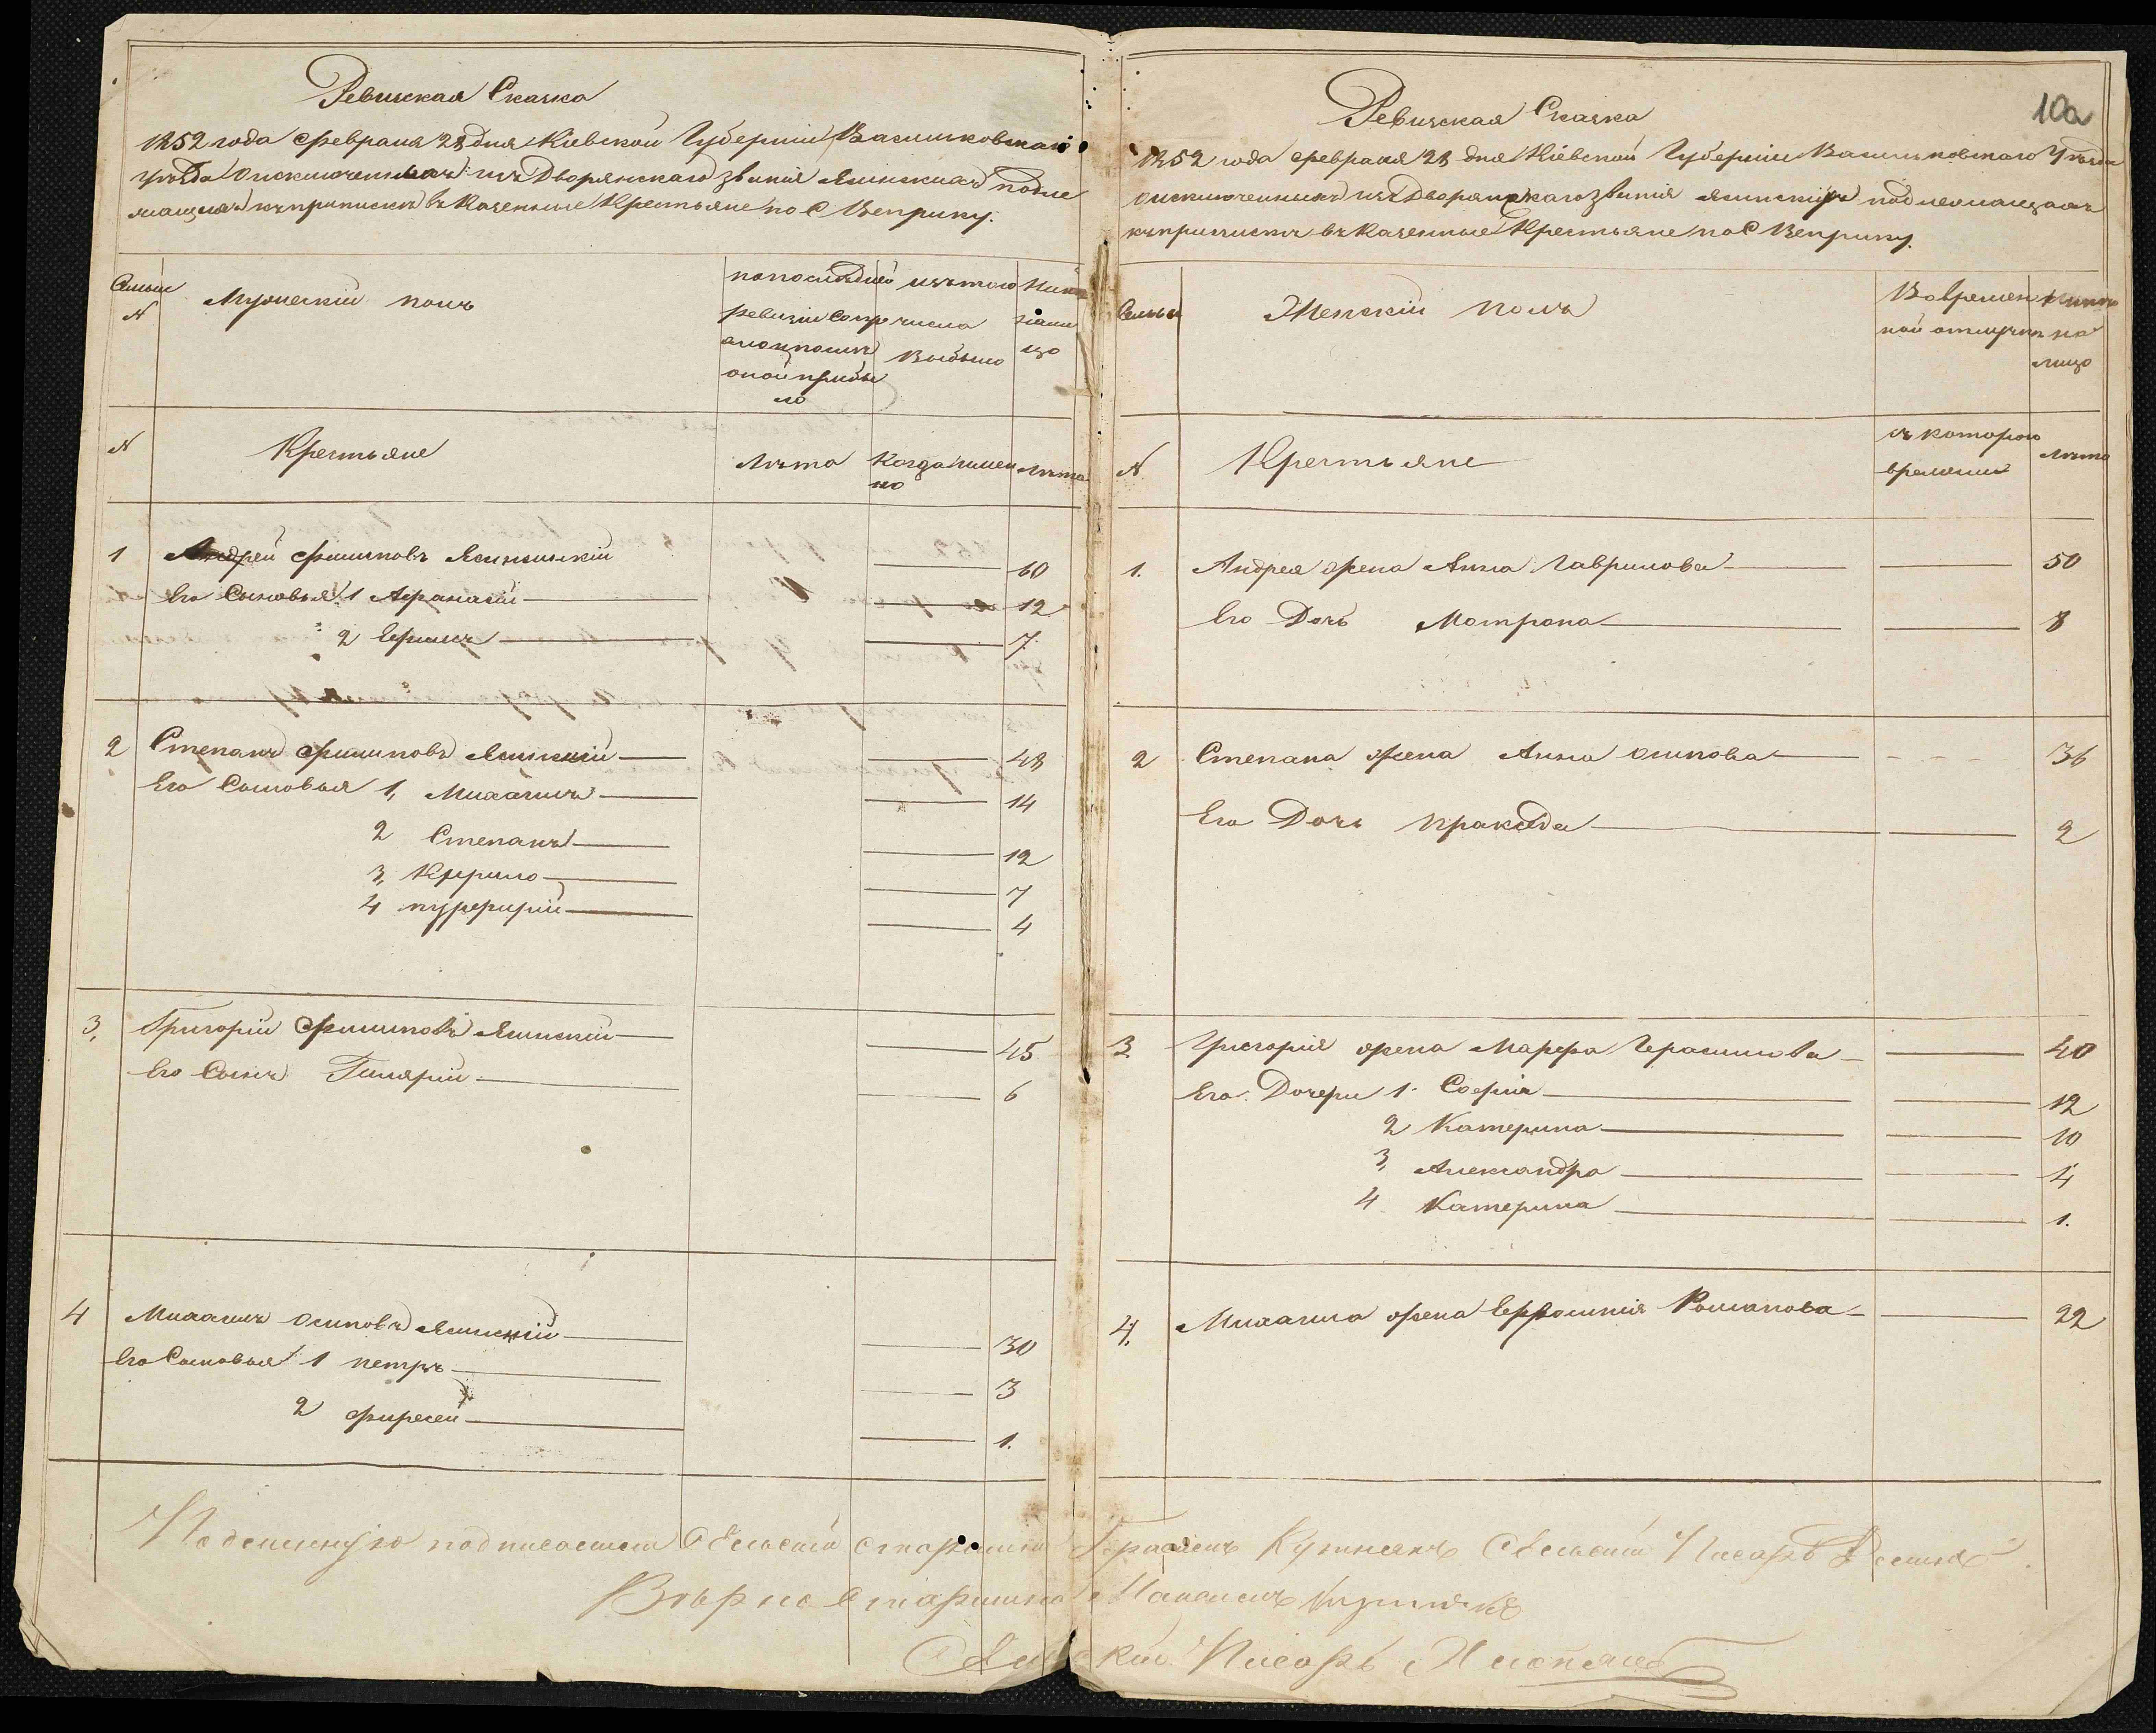 Ревизская Сказка
1852 года Февраля 28 дня Кіевской Губерніи Васильковскаго
уѣзда о исключенныхъ изъ Дворянскаго званія Ясинскихъ подле
жащихъ къ припискѣ въ Казенные Крестьяне по С Веприку.
Семьи
N
Мужескій полъ
по последней
ревизіи состо
яло и послѣ
оной прибы
ло
изъ того
числа
выбыло
Ныне
на ли
цо
N
Крестьяне
Лѣта
Когда имен
но
Лѣта
1 Андрей Филиповъ Ясинскій 60
Его Сыновья 1 Афанасій 12
2 Ефимъ 7
2 Степанъ Филиповъ Ясинскій 48
Его Сыновья 1, Михаилъ 14
2 Степанъ 12
3, Кирило 7
4 4
3, Григорій Филиповъ Ясинскій 45
Его Сынъ Гилярій 6
4 Михаилъ Осиповъ Ясинскій 30
Его Сыновья 1 петръ 3
2 1.
10а
Ревизская Сказка
1852 года Февраля 28 дня Кіевской Губерніи Васильковскаго Уѣзда
о исключенныхъ изъ Дворянскаго званія Ясинскихъ подлежащихъ
къ припискѣ въ Казенные Крестьяне по С Веприку.
Семьи
Женскій полъ
Во времен
ной отлучке
Ныне
на
лицо
N
Крестьяне
съ котораго
времени
Лѣта
1. Андрея жена Анна Гаврилова 50
Его Дочь Мотрона 8
2 Степана жена Анна Осипова 36
Его Дочь Праксѣда 2
3 Григорія жена Марфа Герасимова 40
Его Дочери 1. Софія 12
2 Катерина 10
3, Александра 4
4 Катерина 1.
4, Михаила жена Ефросинія Романова 22
Подлинную подписали Сельскій старшина Герасимъ Сельскій Писарь
Вѣрно Старшина
Сельскій Писарь